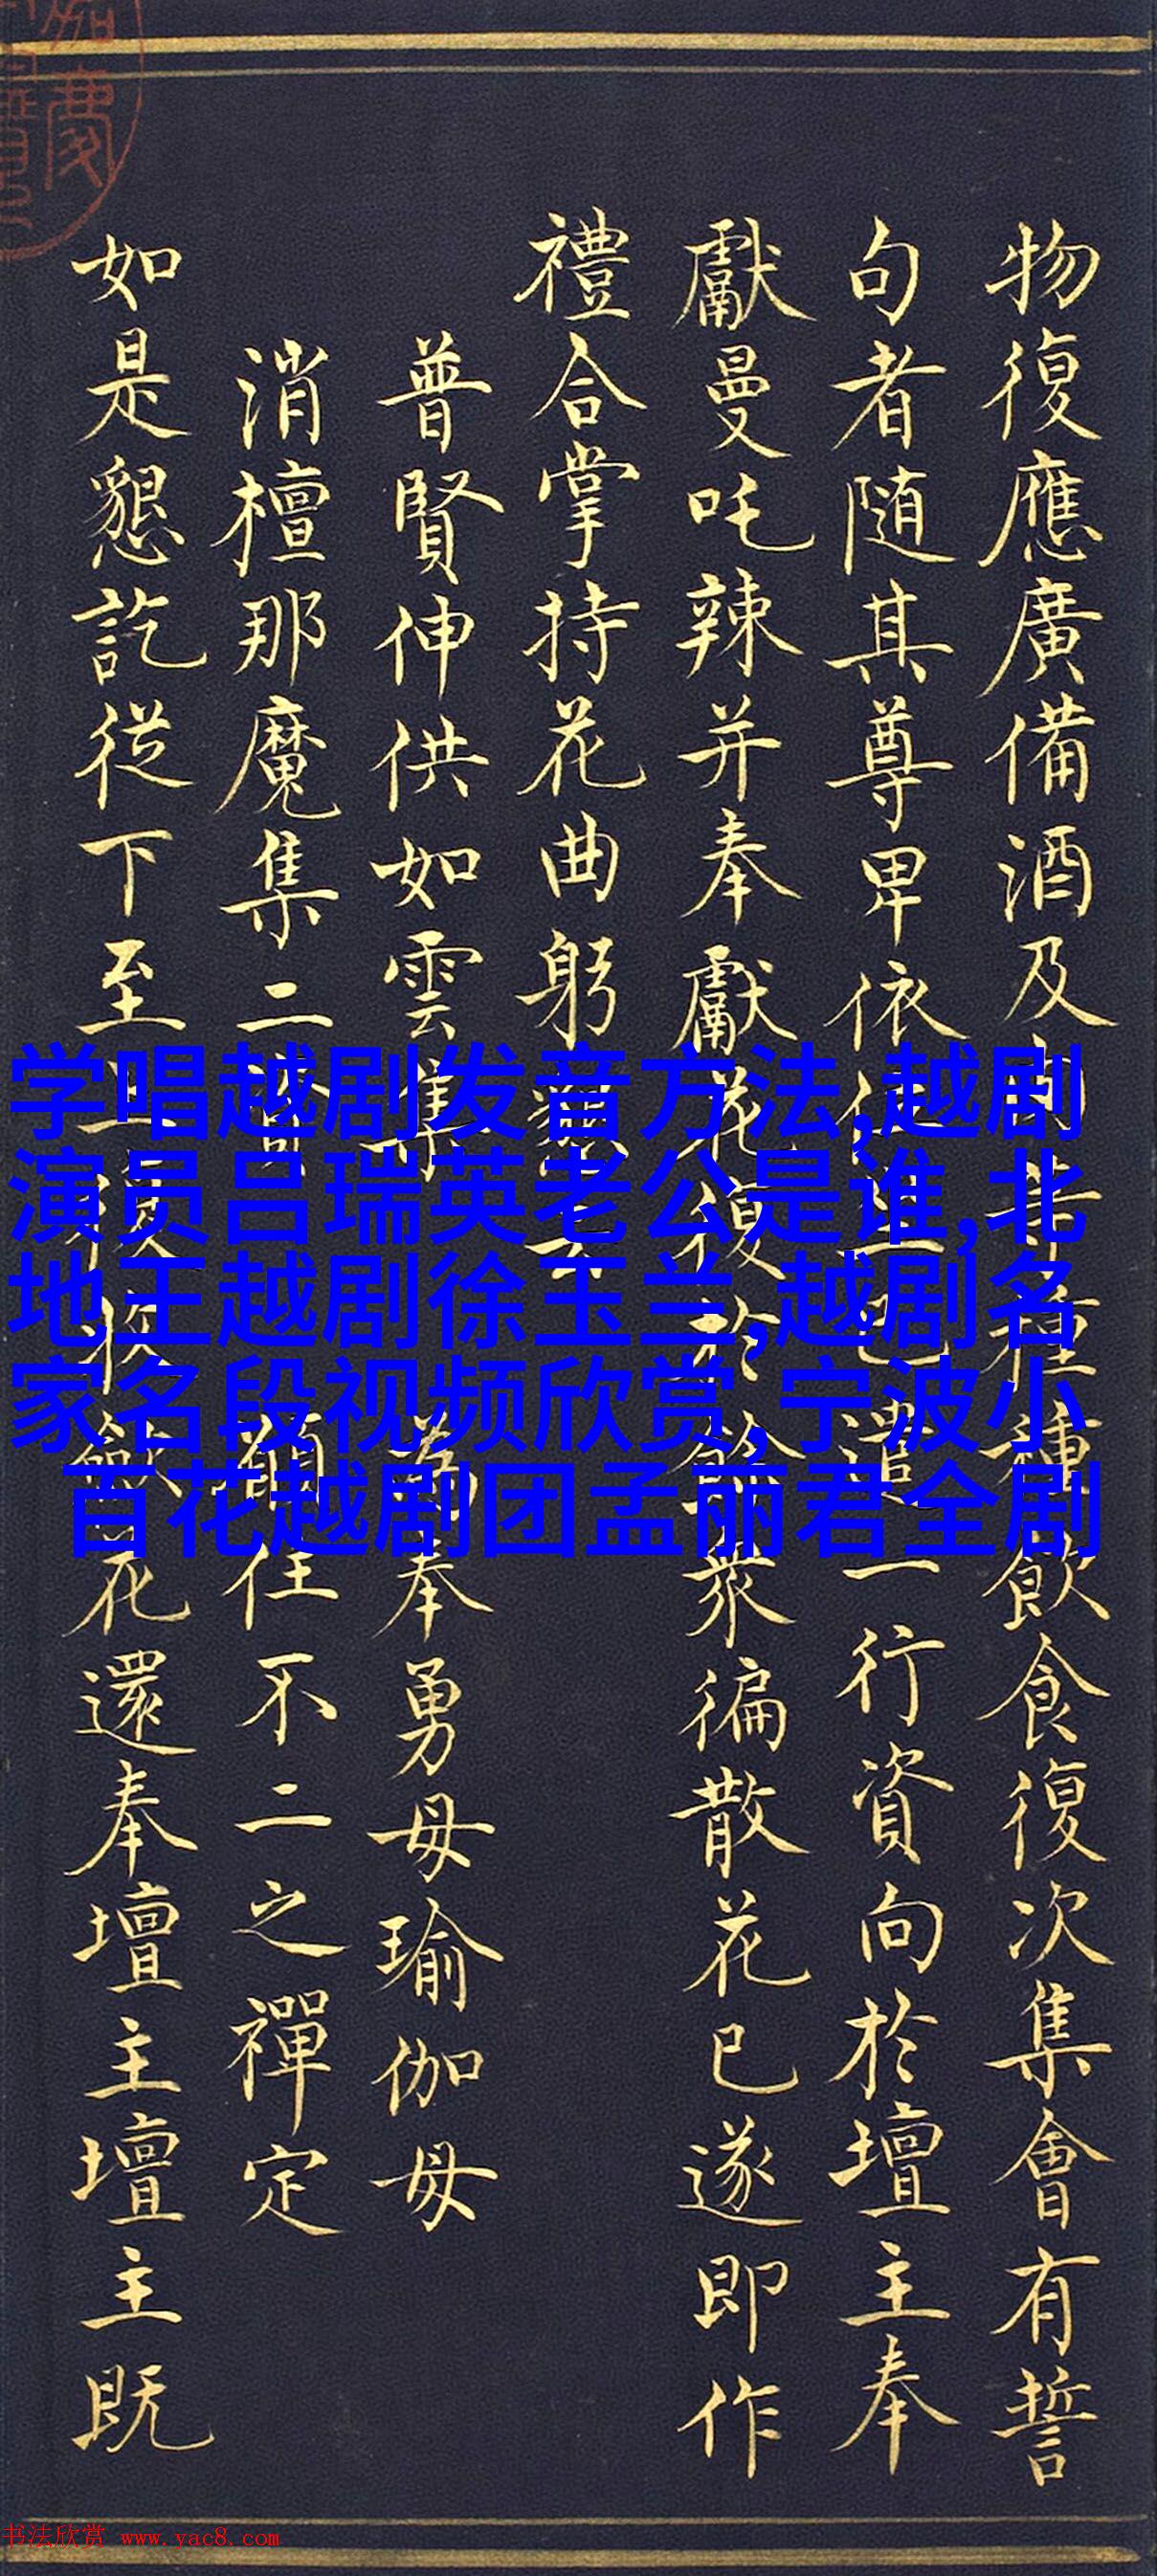 物復應廣備酒及種種飲食復次集會有誓
句者随其尊卑依已遣一行資向於壇主奉
獻曼吒辣并奉獻花復於餘眾徧散花已遂即作
禮合掌持花曲躬云
普賢伸供如雲集 為奉勇母瑜伽母
消檀那魔集二資 願住不二之禪定
如是懇訖從下至上復收獻花還奉壇主壇主既
学唱越剧发音方法,越剧
演员吕瑞英老公是谁,北
地王越剧徐玉兰,越剧名
家名段视频欣赏,宁波小
百花越剧团孟丽君全剧
书法欣赏 www.yac8.com